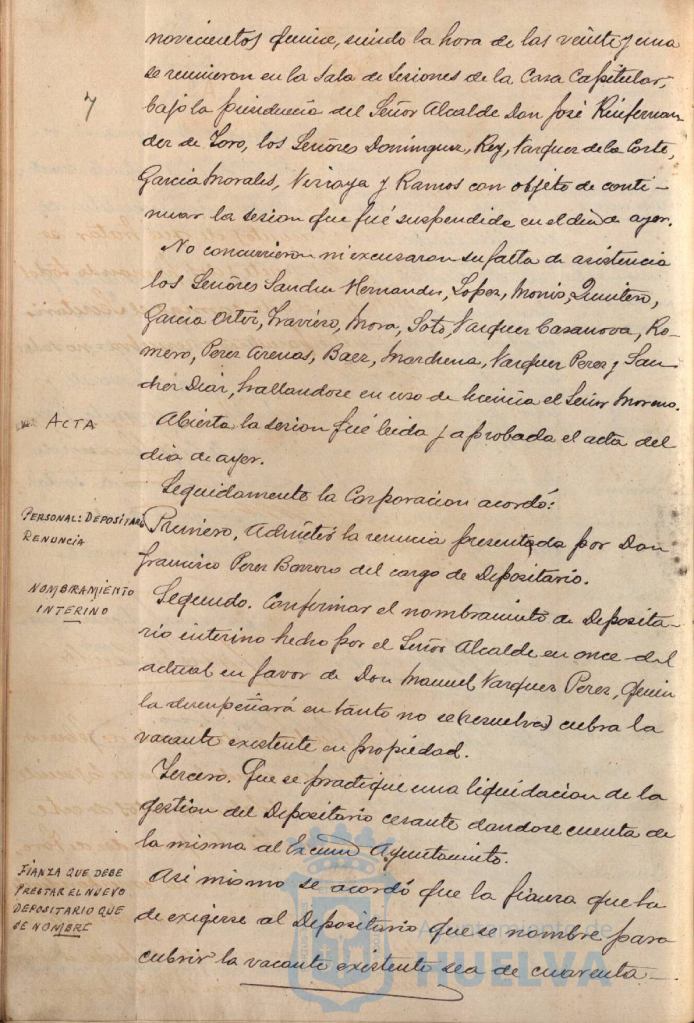 novecientos quince, siendo la hora de las veinte y una
7
se reunieron en la Sala de Sesiones de la Casa Capitular,
bajo la presidencia del Señor Alcalde Don José Rinfernan
der de Toro, los Señores Dominguez, Rey, Vazquez de la Corte,
Garcia Morales, Vizcaya y Ramos con objeto de conti-
nuar la sesion que fué suspendida en el dia de ayer.
No concurrieron ni excusaron su falta de asistencia
los Señores Sanchez Hernandez, Lopez, Monis, Quintero,
Garcia Ortiz, Traviero, Mora, Soto, Vazquez Casanova, Ro-
mero, Perez Arenas, Baez, Marchena, Vazquez Perez y San-
chez Diaz, hallandose en uso de licencia el Señor Moreno.
ACTA
Abierta la sesion fué leida y aprobada el acta del
dia de ayer.
Seguidamente la Corporacion acordó:
PERSONAL: DEPOSITARIO
RENUNCIA
Primero. Admitir la renuncia presentada por Don
Francisco Perez Barroso del cargo de Depositario.
NOMBRAMIENTO
INTERINO
Segundo. Confirmar el nombramiento de Deposita-
rio interino hecho por el Señor Alcalde en once del
actual en favor de Don Manuel Vazquez Perez, quien
la desempeñará en tanto no se (resuelva) cubra la
vacante existente en propiedad.
Tercero. Que se practique una liquidacion de la
gestion del Depositario cesante dandose cuenta de
la misma al Excmo Ayuntamiento.
FIANZA QUE DEBE
PRESTAR EL NUEVO
DEPOSITARIO QUE
SE NOMBRE
Asi mismo se acordó que la fianza que ha
de exigirse al Depositario que se nombre para
cubrir la vacante existente sea de cuarenta
Ayuntamiento de
HUELVA